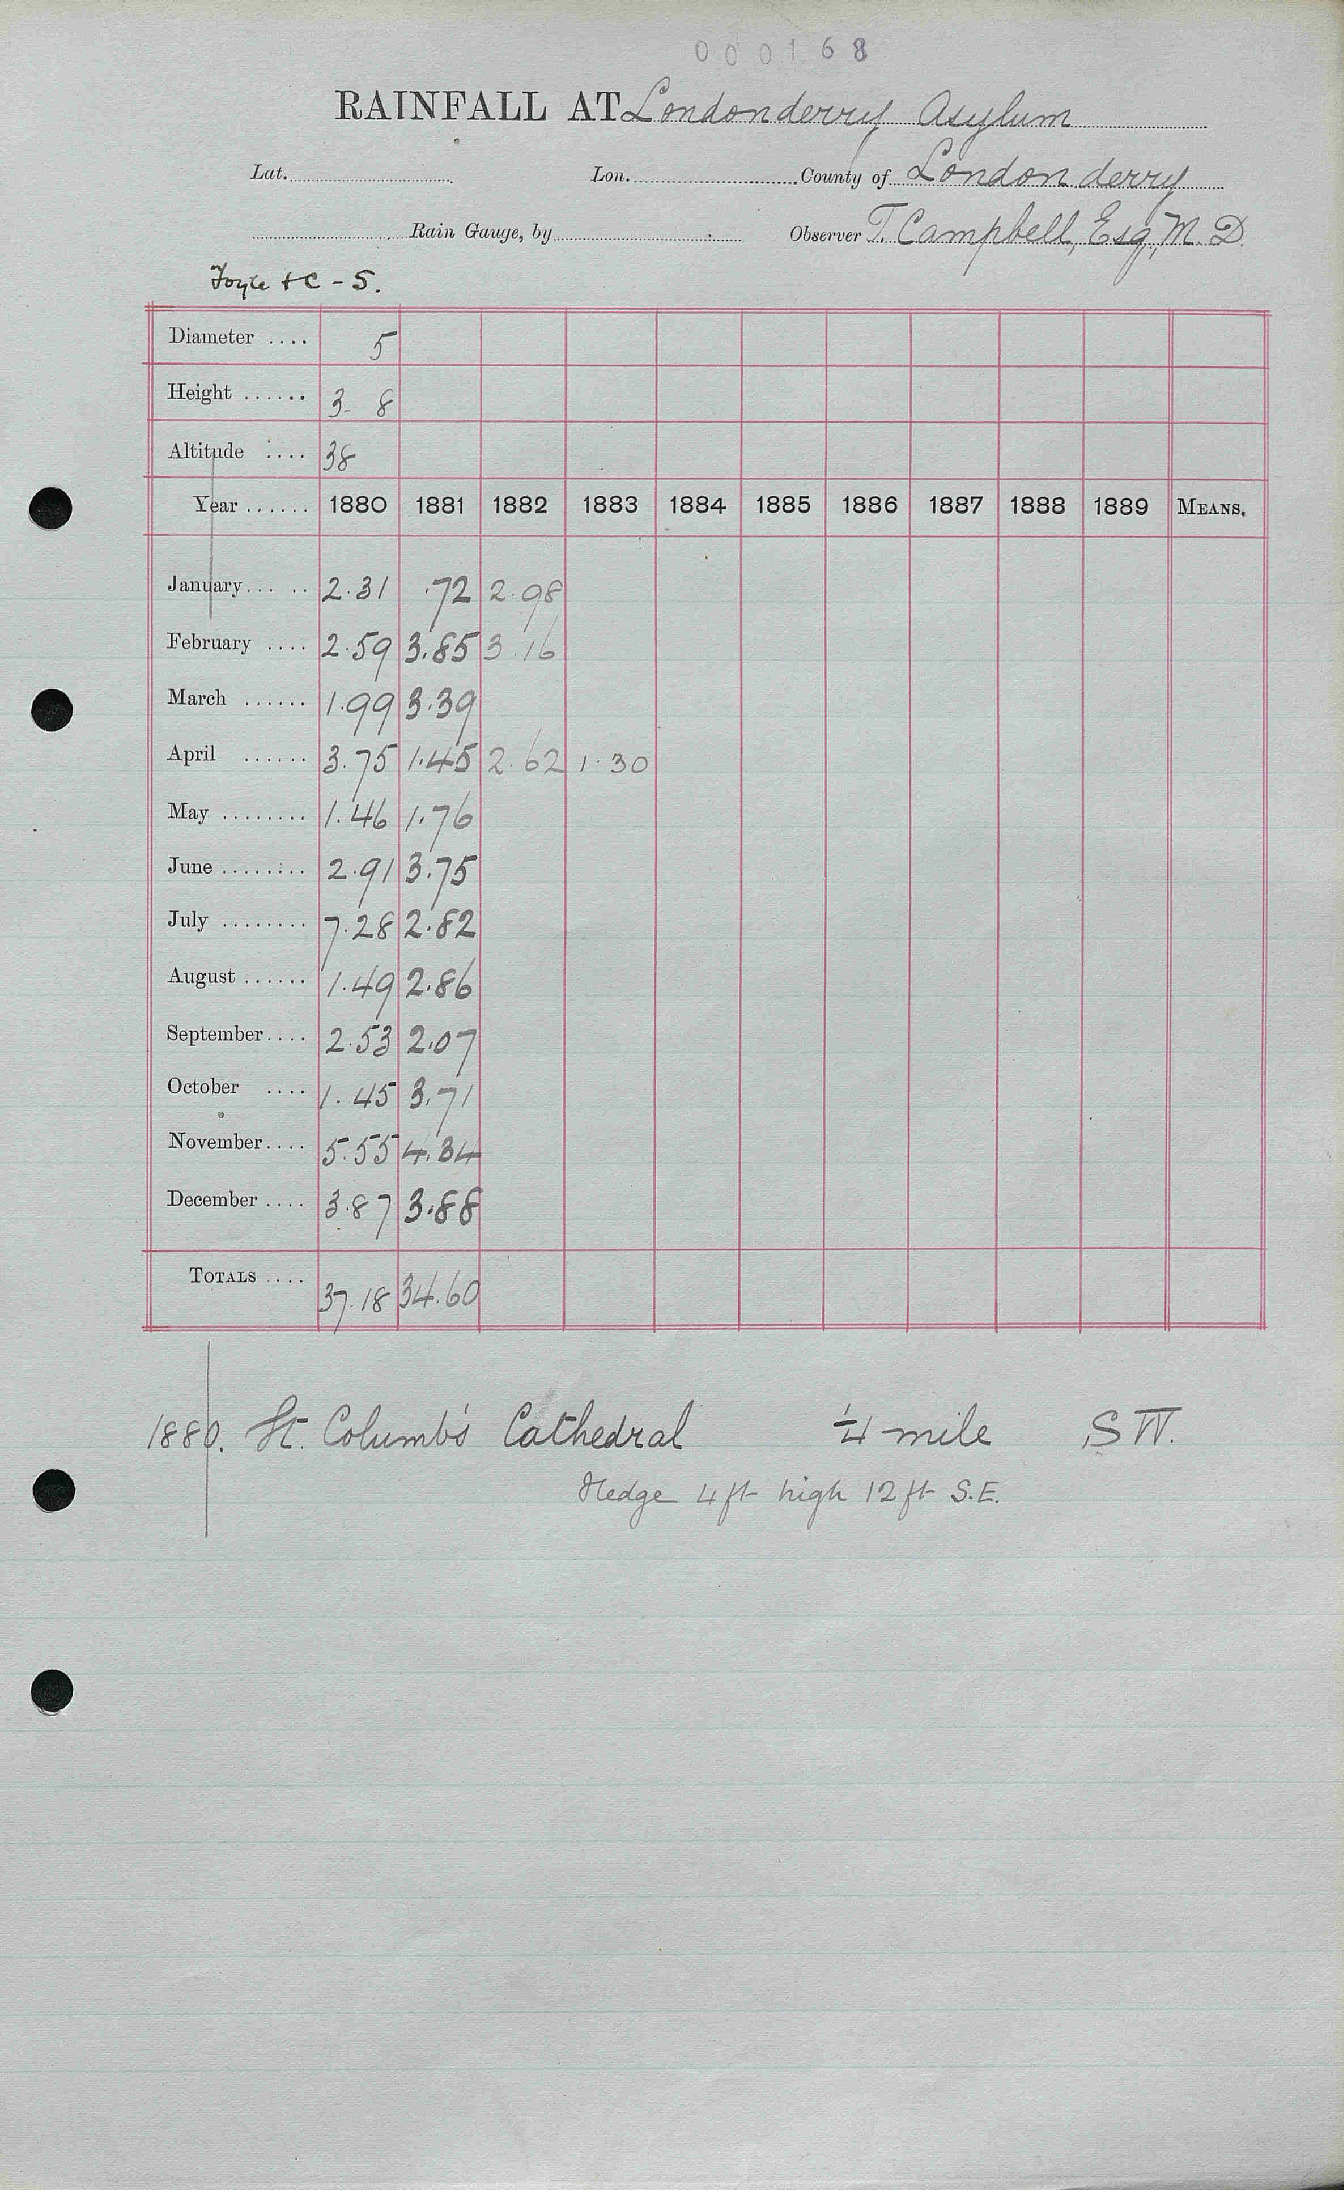 000168
RAINFALL AT Londonderry Asylum
Lat. Lon. County of Londonderry
Rain Gauge, by Observer T. Campbell, Esq., M.D.
Foyle &C - 5.
Diameter .... 5
Height ...... 3 8
Altitude .... 38
Year ...... 1880 1881 1882 1883 1884 1885 1886 1887 1888 1889 MEANS.
January ..... 2.31 .72 2.98
February .... 2.59 3.85 3.16
March ...... 1.99 3.39
April ...... 3.75 1.45 2.62 1.30
May ........ 1.46 1.76
June ........ 2.91 3.75
July ........ 7.28 2.82
August ...... 1.49 2.86
September .... 2.53 2.07
October .... 1.45 3.71
November .... 5.55 4.34
December .... 3.87 3.88
TOTALS .... 37.18 34.60
1880. St. Columb's Cathedral 1/4 mile SW.
Hedge 4ft high 12ft S.E.